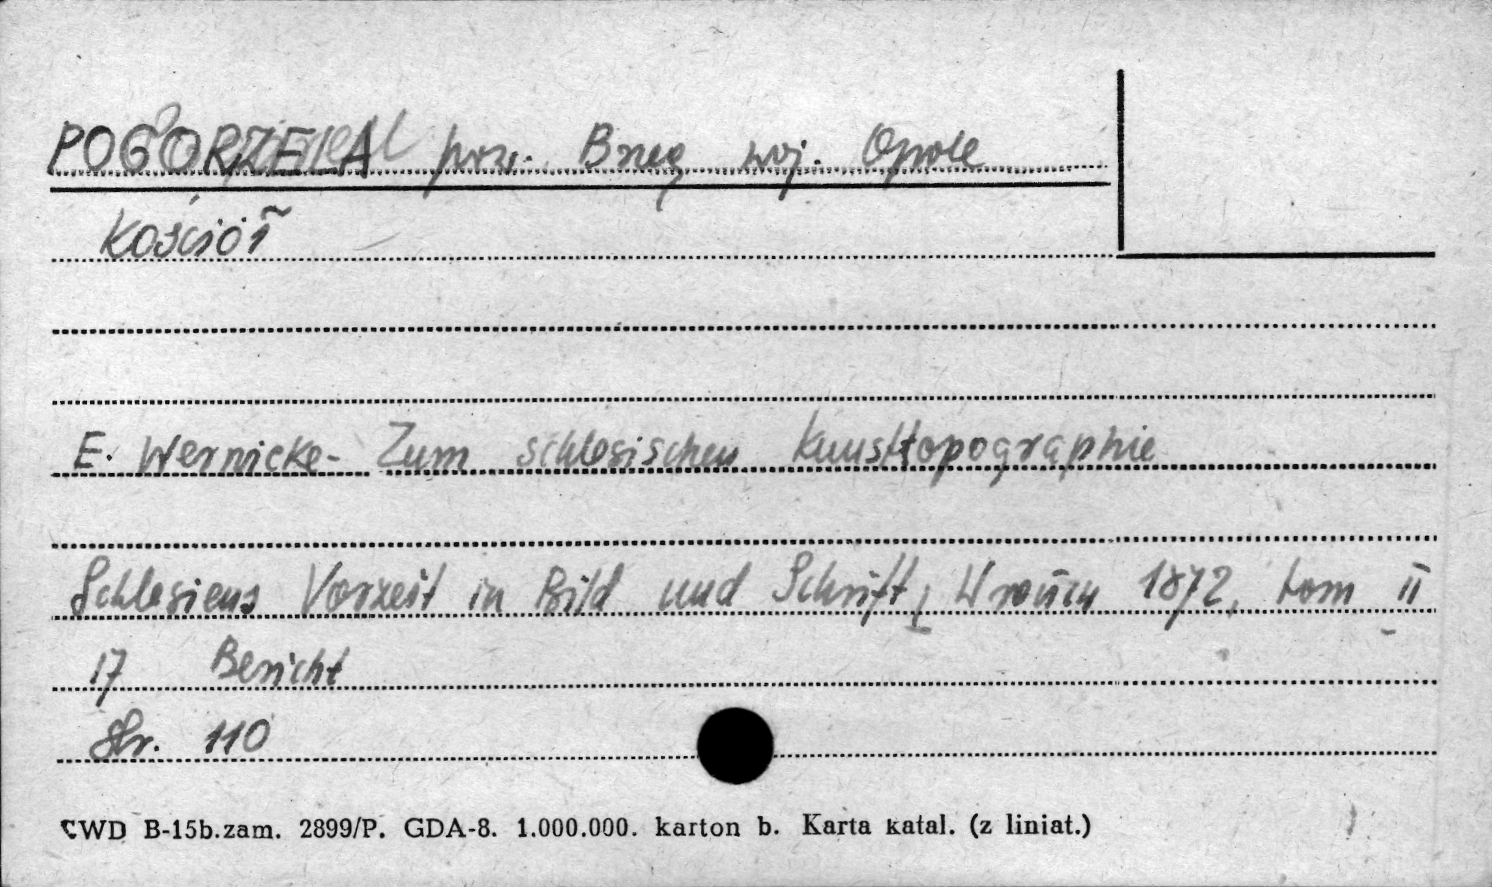 POGORZELA pow. Brzeg woj. Opole
Kościół
E. Wernicke - Zum schlesischen Kunsttopographie
Schlesiens Vorzeit in Bild und Schrift, 1872, tom II
17 Bericht
Str. 110
CWD B-15b.zam. 2899/P. GDA-8. 1.000.000. karton b. Karta katal. (z liniat.)